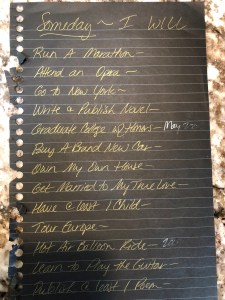 Someday ~ I Will
Run A Marathon -
Attend an Opera -
Go to New York -
Write & Publish Novel -
Graduate College w/ Honors - May
Buy A Brand New Car -
Own My Own House -
Get Married to My True Love -
Have @ least 1 Child -
Tour Europe -
Hot Air Balloon Ride -
Learn to Play the Guitar -
Publish @ least 1 Poem -